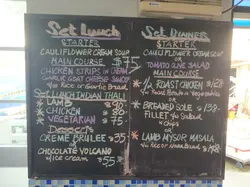 Set Lunch
STARTER
CAULIFLOWER CREAM SOUP
MAIN COURSE $75
CHICKEN STRIPS IN CREAM
GARLIC GOAT CHEESE SAUCE
w/ Rice or Garlic Bread
Set LUNCH INDIAN THALI
* LAMB 90
* CHICKEN 80
* VEGETARIAN $ 75
Desserts
CREME BRULEE $35
*
CHOCOLATE VOLCANO
w/ice cream $55
Set DINNER
STARTER
CAULIFLOWER CREAM SOUP
or
TOMATO SALAD
MAIN COURSE
* 1/2 ROAST CHICKEN
w/ Roast & Vegetables
or
* BREADED SOLE $138
FILLET w/ SALAD
& Chips
or
* LAMB MYSOR MASALA
w/ Rice or